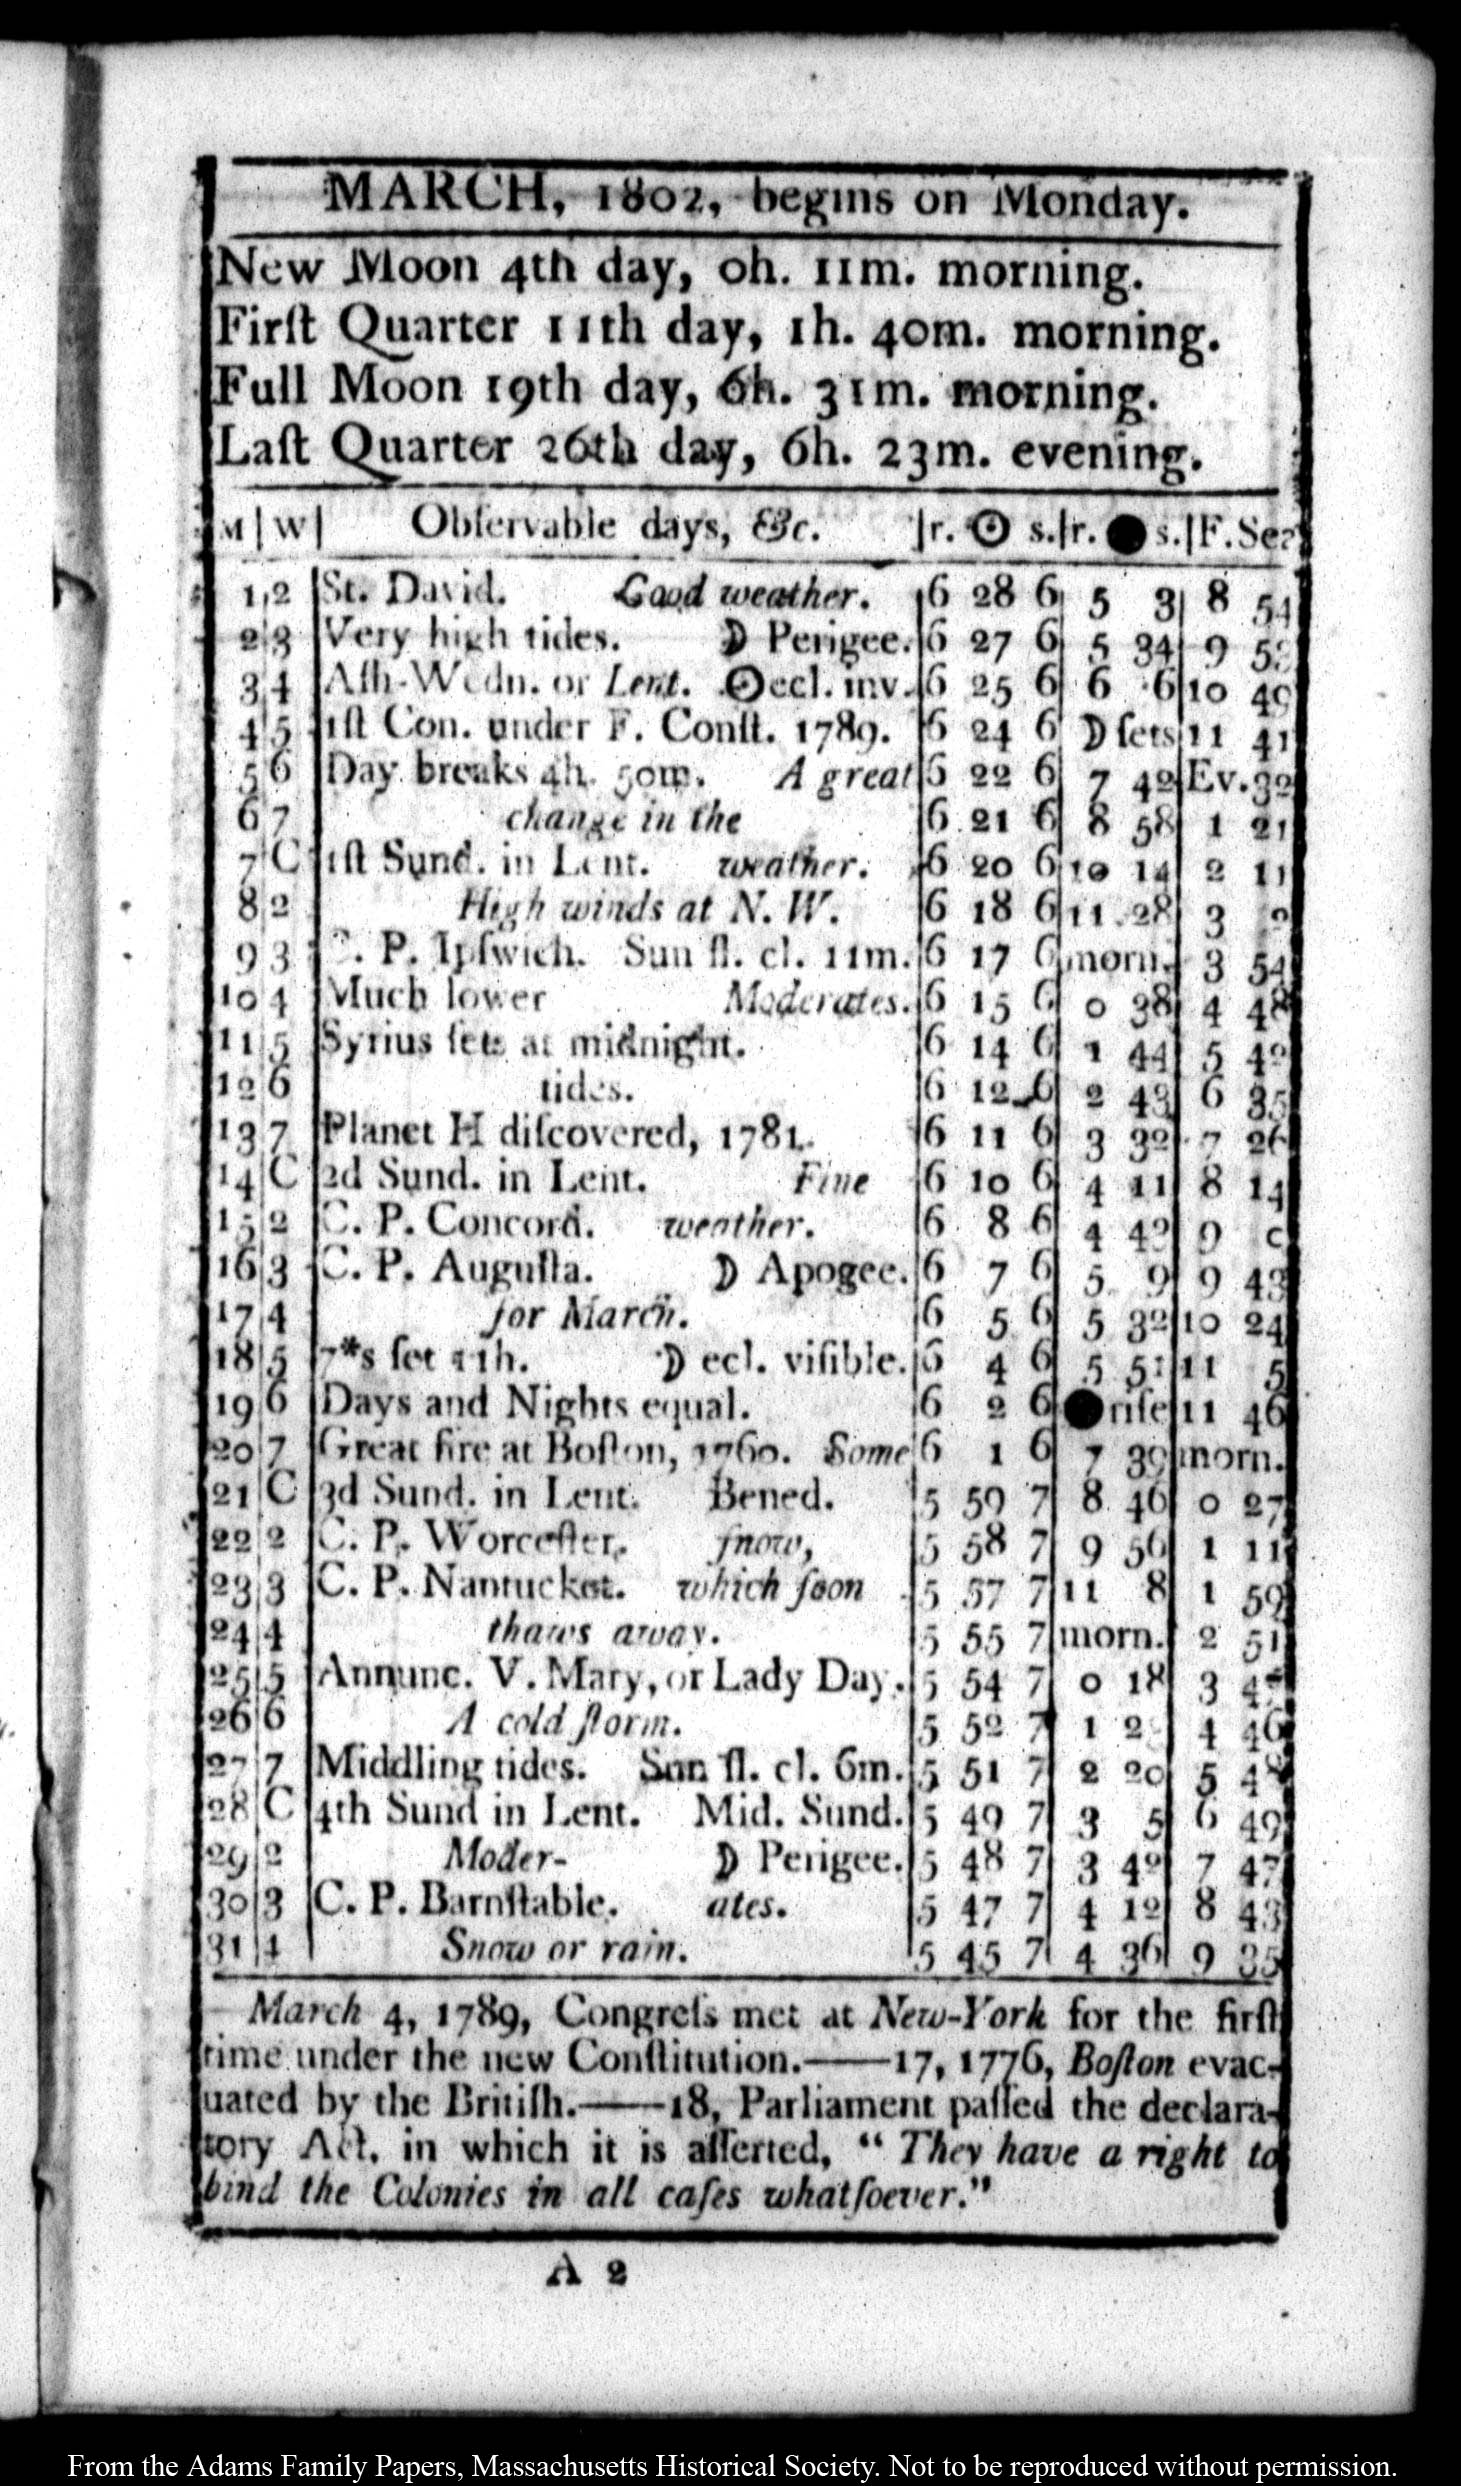 MARCH, 1802, begins on Monday.
New Moon 4th day, 0h. 11m. morning.
Firſt Quarter 11th day, 1h. 40m. morning.
Full Moon 19th day, 6h. 31m. morning.
Laſt Quarter 26th day, 6h. 23m. evening.
M | W | Obſervable days, &c. |r. ☉ s.|r. ● s.|F. Sea
1 2 St. David. Good weather. 6 28 6 5 3 8 54
2 3 Very high tides. ☽ Perigee. 6 27 6 5 34 9
3 4 Aſh-Wedn. or Lent. ☉ ecl. inv. 6 25 6 6 6 10 49
4 5 1ſt Con. under F. Conſt. 1789. 6 24 6 ☽ ſets 11 41
5 6 Day breaks 4h. 50m. A great 6 22 6 7 42 Ev. 32
6 7 change in the 6 21 6 8 58 1 21
7 C 1ſt Sund. in Lent. weather. 6 20 6 10 14 2 11
8 2 High winds at N. W. 6 18 6 11 28 3
9 3 C. P. Ipſwich. Sun ſl. cl. 11m. 6 17 6 morn. 3 54
10 4 Much lower Moderates. 6 15 6 0 38 4 48
11 5 Syrius ſets at midnight. 6 14 6 1 44 5 42
12 6 tides. 6 12 6 2 43 6 35
13 7 Planet H diſcovered, 1781. 6 11 6 3 32 7 26
14 C 2d Sund. in Lent. Fine 6 10 6 4 11 8 14
15 2 C. P. Concord. weather. 6 8 6 4 43 9
16 3 C. P. Auguſta. ☽ Apogee. 6 7 6 5 9 9 43
17 4 for March. 6 5 6 5 32 10 24
18 5 7*s ſet 11h. ☽ ecl. viſible. 6 4 6 5 51 11 5
19 6 Days and Nights equal. 6 2 6 ● riſe 11 46
20 7 Great fire at Boſton, 1760. Some 6 1 6 7 39 morn.
21 C 3d Sund. in Lent. Bened. 5 59 7 8 46 0 27
22 2 C. P. Worceſter. ſnow, 5 58 7 9 56 1 11
23 3 C. P. Nantucket. which ſoon 5 57 7 11 8 1 59
24 4 thaws away. 5 55 7 morn. 2 51
25 5 Annunc. V. Mary, or Lady Day. 5 54 7 0 18 3
26 6 A cold ſtorm. 5 52 7 1 4 46
27 7 Middling tides. Sun ſl. cl. 6m. 5 51 7 2 20 5 48
28 C 4th Sund in Lent. Mid. Sund. 5 49 7 3 5 6 49
29 2 Moder- ☽ Perigee. 5 48 7 3 42 7 47
30 3 C. P. Barnſtable. ates. 5 47 7 4 12 8 43
31 4 Snow or rain. 5 45 7 4 36 9 35
March 4, 1789, Congreſs met at New-York for the firſt
time under the new Conſtitution.——17, 1776, Boſton evac-
uated by the Britiſh.——18, Parliament paſſed the declara-
tory Act, in which it is aſſerted, “ They have a right to
bind the Colonies in all caſes whatſoever.”
A 2
From the Adams Family Papers, Massachusetts Historical Society. Not to be reproduced without permission.